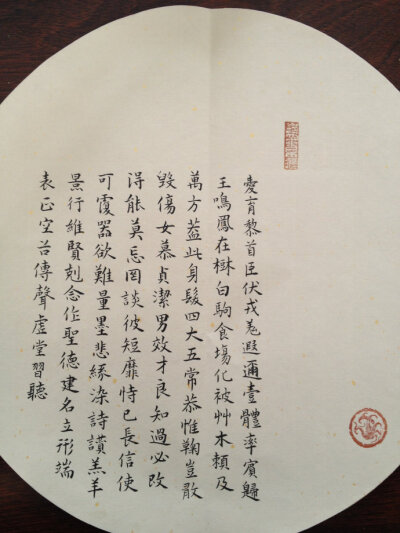 愛育黎首臣伏戎羌遐邇壹體率賓歸
王鳴鳳在樹白駒食塲化被艸木賴及
萬方葢此身髮四大五常恭惟鞠豈敢
毀傷女慕貞潔男效才良知過必改
得能莫忘罔談彼短靡恃己長信使
可覆器欲難量墨悲絲染詩讚羔羊
景行維賢剋念作聖德建名立形端
表正空谷傳聲虛堂習聽